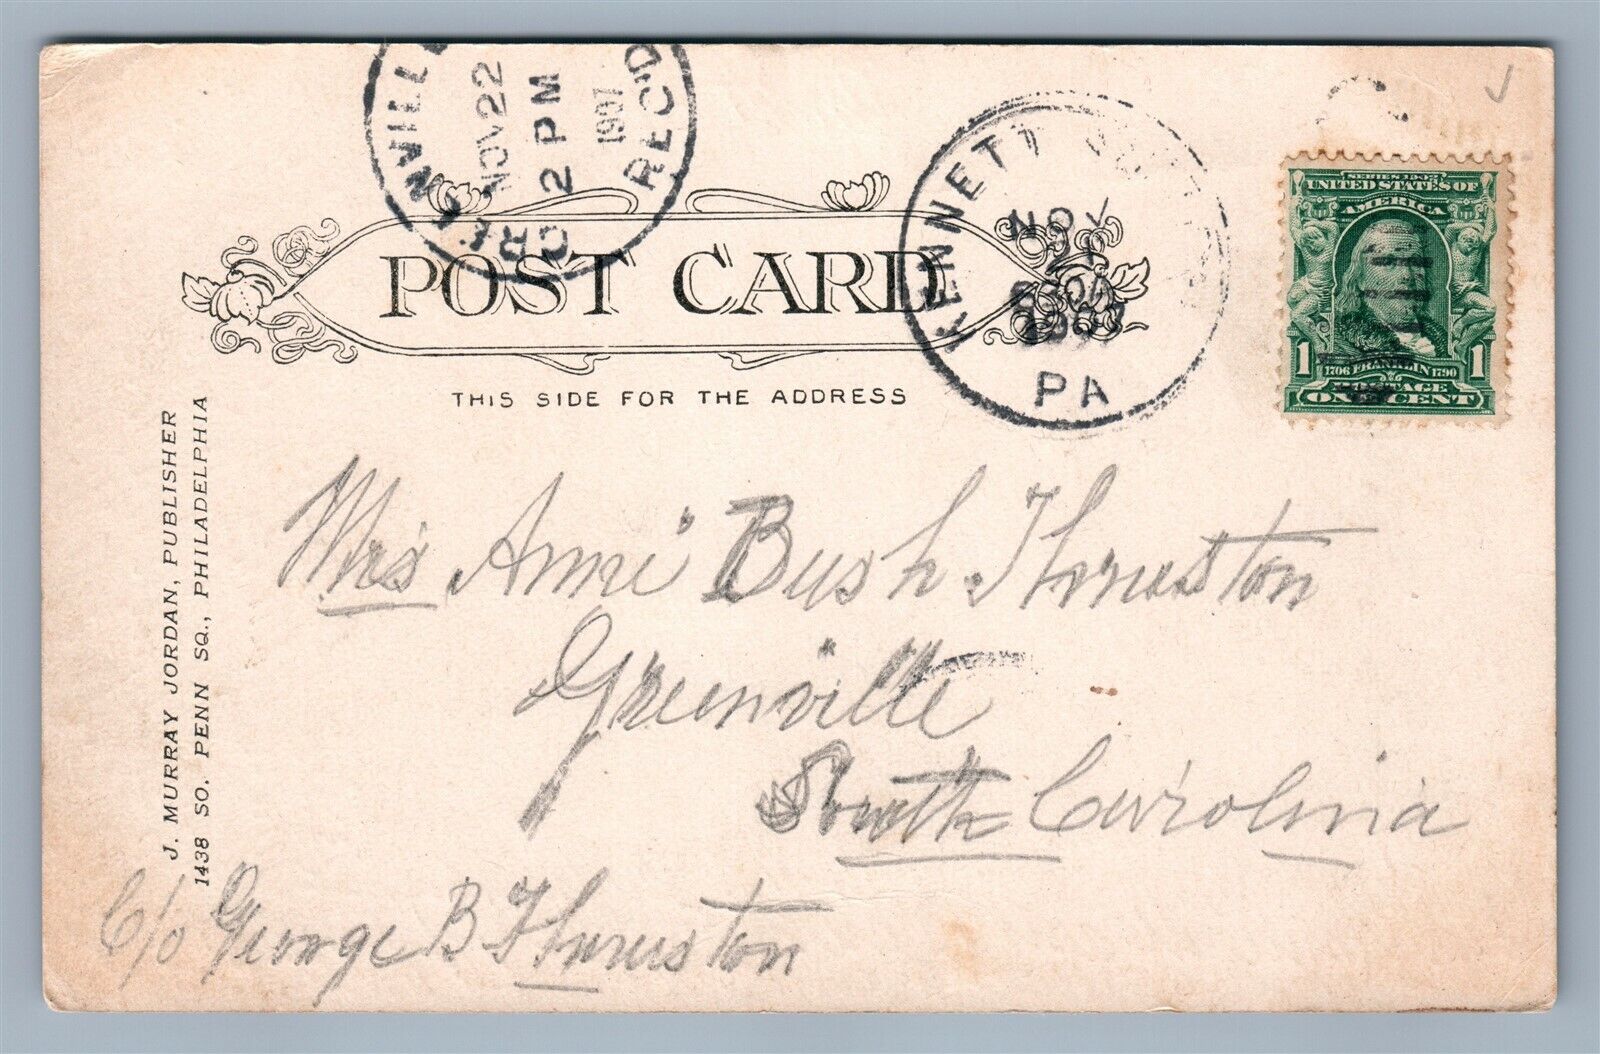 GREENVILLE
NOV 22
2 PM
1907
REC'D
KENNETT
NOV
21
PA
SERIES 1902
UNITED STATES OF
AMERICA
1 1
1706 FRANKLIN 1790
POSTAGE
ONE CENT
POST CARD
THIS SIDE FOR THE ADDRESS
J. MURRAY JORDAN, PUBLISHER
1438 SO. PENN SQ., PHILADELPHIA
Mrs Anni Bush Thruston
Greenville
South Carolina
C/o George B Thruston